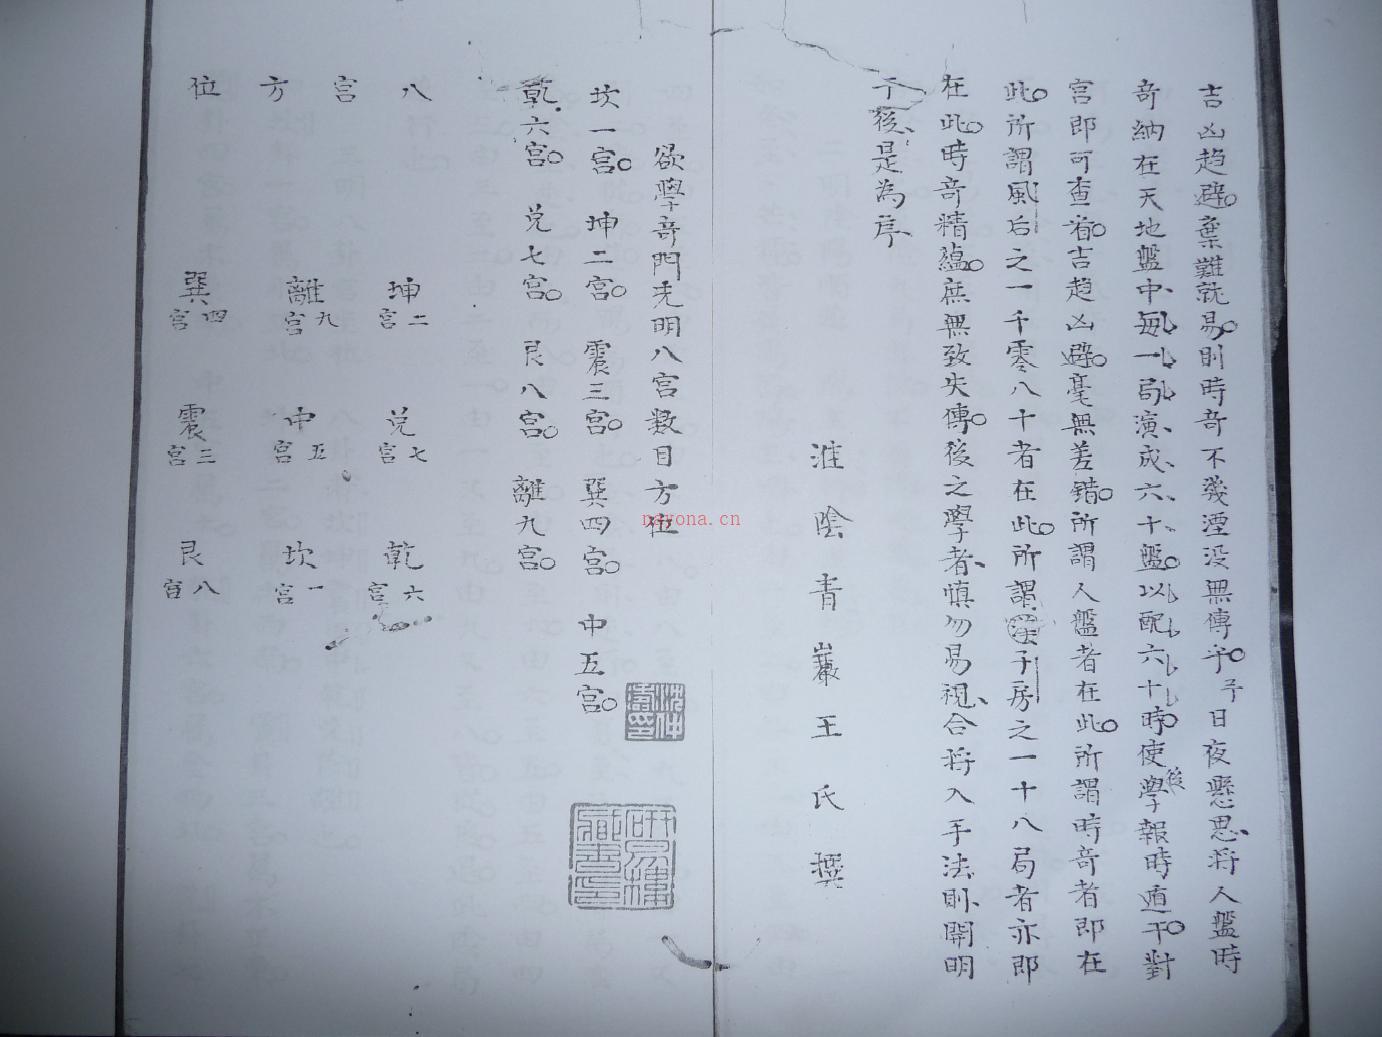 吉凶趋避棄難就易則時竒不幾湮没無傳乎予日夜懸思將人盤時
竒納在天地盤中每一局演成六十盤以配六十時使後學報時直干對
宮即可查看吉趋凶避毫無差錯所謂人盤者在此所謂時竒者即在
此所謂風后之一千零八十者在此所謂子房之一十八局者亦即
在此時竒精蘊庶無致失傳後之學者慎勿易視合将入手法則開明
于後是為序
淮陰青巖王氏撰
欲學竒門先明八宮數目方位
坎一宮坤二宮震三宮巽四宮中五宮
乾六宮兑七宮艮八宮離九宮
八宮方位
坤二宮 兑七宮 乾六宮
離九宮 中五宮 坎一宮
巽四宮 震三宮 艮八宮
研易樓
藏書印
nayona.cn